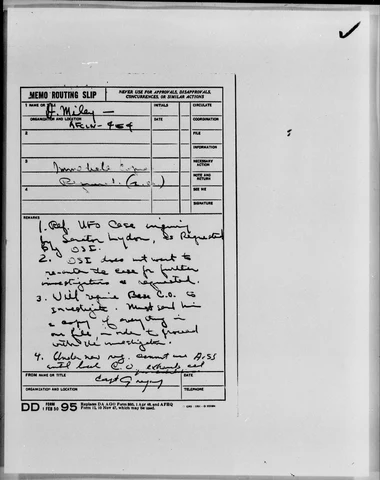 MEMO ROUTING SLIP
NEVER USE FOR APPROVALS, DISAPPROVALS,
CONCURRENCES, OR SIMILAR ACTIONS
1 NAME OR TITLE
H. Miley
INITIALS
CIRCULATE
ORGANIZATION AND LOCATION
AFCIN-4E4
DATE
COORDINATION
2
FILE
INFORMATION
3
NECESSARY
ACTION
NOTE AND
RETURN
4
SEE ME
SIGNATURE
REMARKS
1. Ref. UFO Case inquiry
by Senator as Requested
by OSI.
2. OSI does not want to
the case for further
investigation as requested.
3. Will require Base C.O. to
investigate. Must send him
a copy of everything in
our file in order to proceed
with the investigation.
4. Under new reg. cannot use AISS
until base C.O.
FROM NAME OR TITLE
DATE
ORGANIZATION AND LOCATION
TELEPHONE
DD FORM 1 FEB 50 95
Replaces DA AGO Form 895, 1 Apr 48, and AFHQ
Form 12, 10 Nov 47, which may be used.